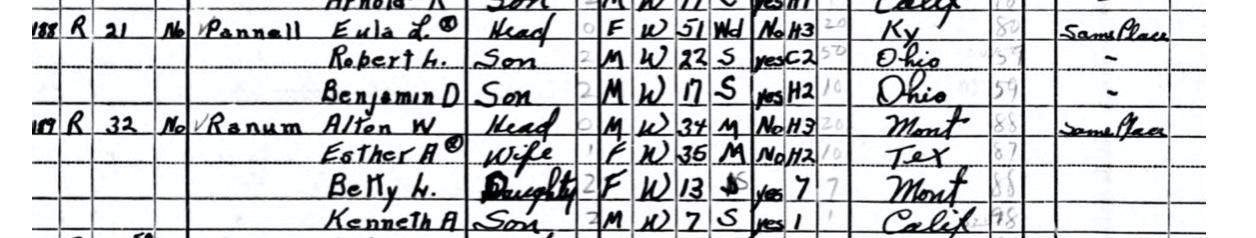 Son M W 17 S yes H1 Calif
188 R 21 No Pannell Eula L. ⓧ Head 0 F W 51 Wd No H3 20 Ky 80 Same Place
Robert L. Son 2 M W 22 S yes C2 50 Ohio 59 -
Benjamin D Son 2 M W 17 S yes H2 10 Ohio 59 -
189 R 32 No Ranum Alton W Head 0 M W 34 M No H3 20 Mont 88 Same Place
Esther A ⓧ Wife 1 F W 35 M No H2 10 Tex 87
Betty L. Daughty 2 F W 13 S yes 7 7 Mont 88
Kenneth A Son 2 M W 7 S yes 1 1 Calif 98